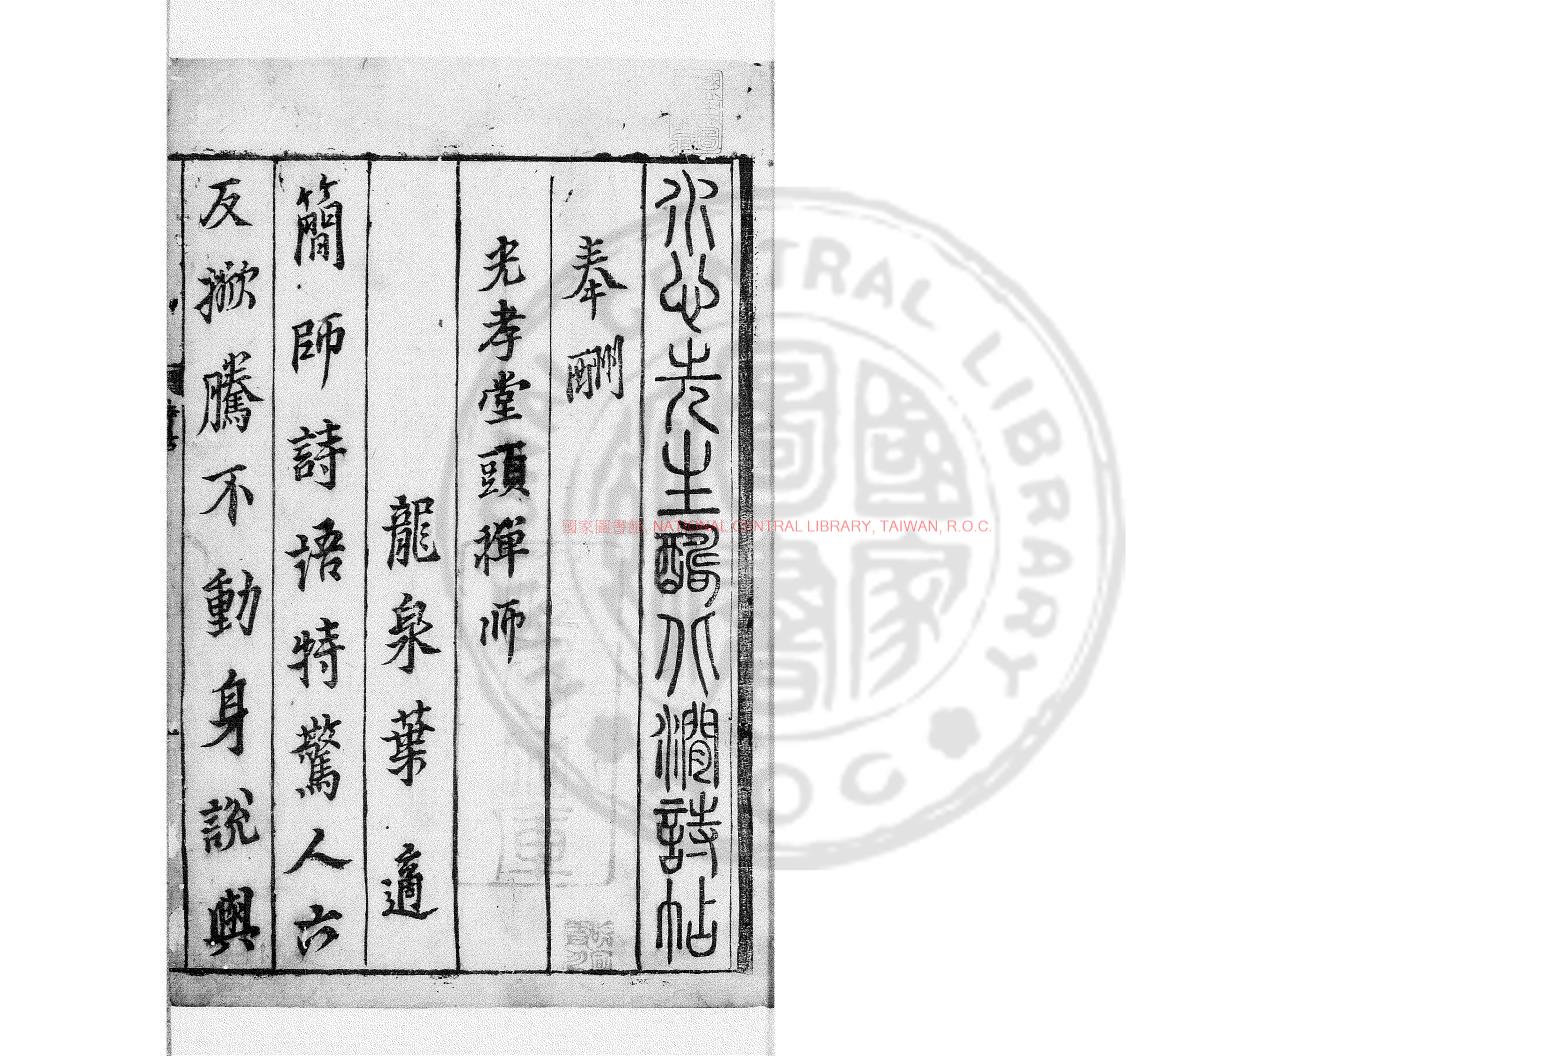 水心先生酬北澗詩帖
奉酬
光孝堂頭禪师
龍泉葉適
簡師詩語特驚人六
反掀騰不動身說與
國家圖書館 NATIONAL CENTRAL LIBRARY, TAIWAN, R.O.C.